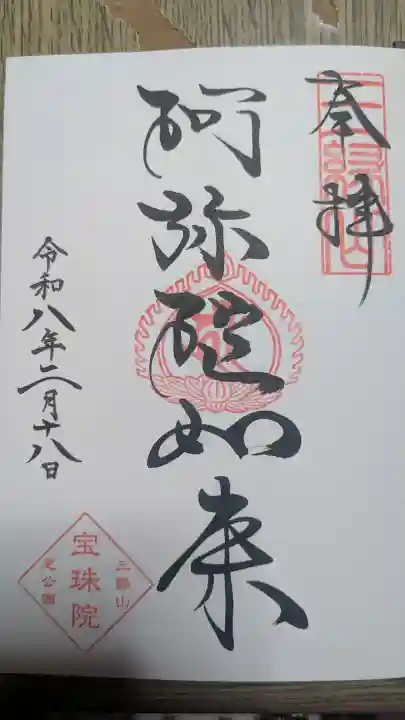 奉拝
阿弥陀如来
令和八年二月十八日
三縁山
宝珠院
芝公園